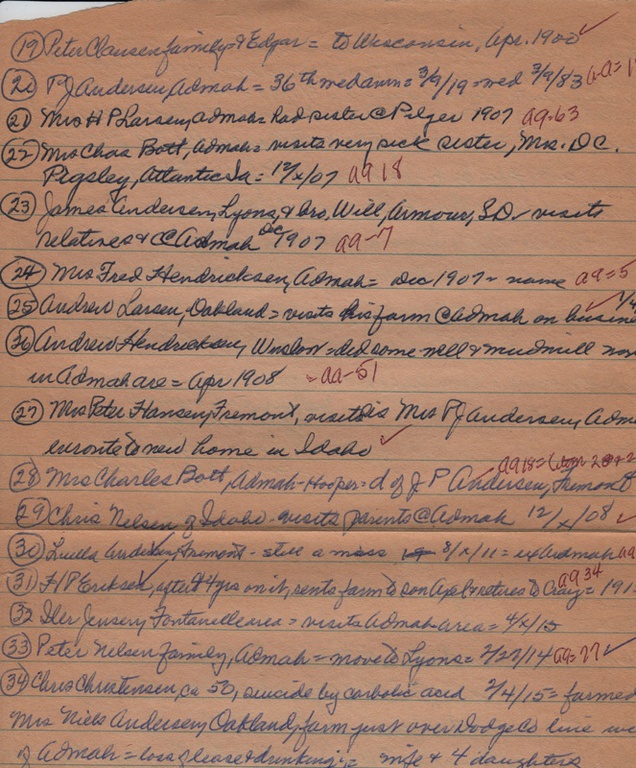 (19) Peter Clausen family & Edgar = to Wisconsin, Apr. 1900 ✓
(20) PJ Andersen, Admah = 36th wed ann = 3/9/19 = wed 3/9/83 aa = 1
(21) Mrs H P Larsen, Admah = had sister @ Pilger 1907 aa-63
(22) Mrs Chas Bott, Admah = visits very sick sister, Mrs. D C.
Pigsley, Atlantic Ia = 12/x/07 aa 18
(23) James Andersen, Lyons, & bro, Will, Armour, S.D. visits
relatives @ Admah Dec 1907 aa-7
(24) Mrs Fred Hendricksen, Admah = Dec 1907 = name aa = 5
(25) Andrew Larsen, Oakland = visits his farm @ Admah on busine
Andrew Hendricksen, Winslow = did some well & windmill wo
in Admah are = Apr 1908 = aa-51
(27) Mrs Peter Hansen, Fremont, visits sis Mrs PJ Andersen, Adm
enroute to new home in Idaho ✓
aa 18 =
(28) Mrs Charles Bott, Admah-Hooper = d of J P Andersen, Fremont
(29) Chris Nelsen of Idaho - visits parents @ Admah 12/x/08 ✓
(30) Luella Andersen, Fremont - still a miss 8/x/11 = ex Admah aa
aa 34
(31) H P Ericksen, after 24 yrs on it, rents farm to son Axel & retires to Craig = 191
32 Iler Jensen, Fontanelle area = visits Admah area = 4/x/15
(33) Peter Nelsen family, Admah = move to Lyons = 2/23/14 aa = 77 ✓
(34) Chris Christensen, ca 50, suicide by carbolic acid 2/4/15 = farmed
Mrs Niels Andersen, Oakland, farm just over Dodge Co line we
of Admah = loss of lease & drinking; = wife & 4 daughters